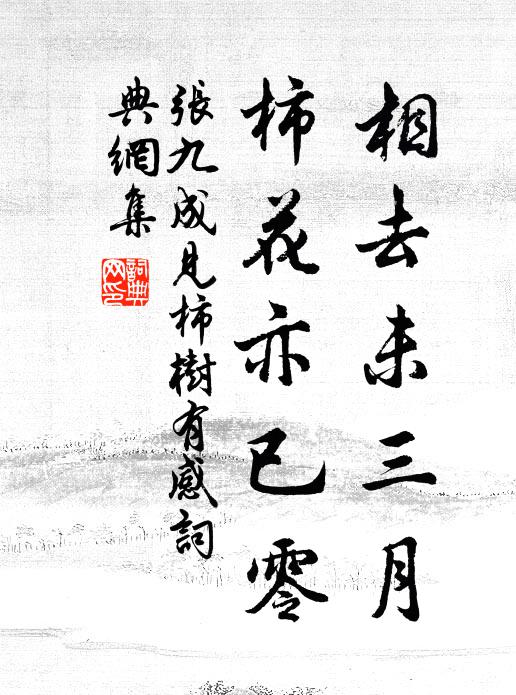 相去未三月
柿花亦已零
張九成見柿樹有感詞
典網集
詞典
网印